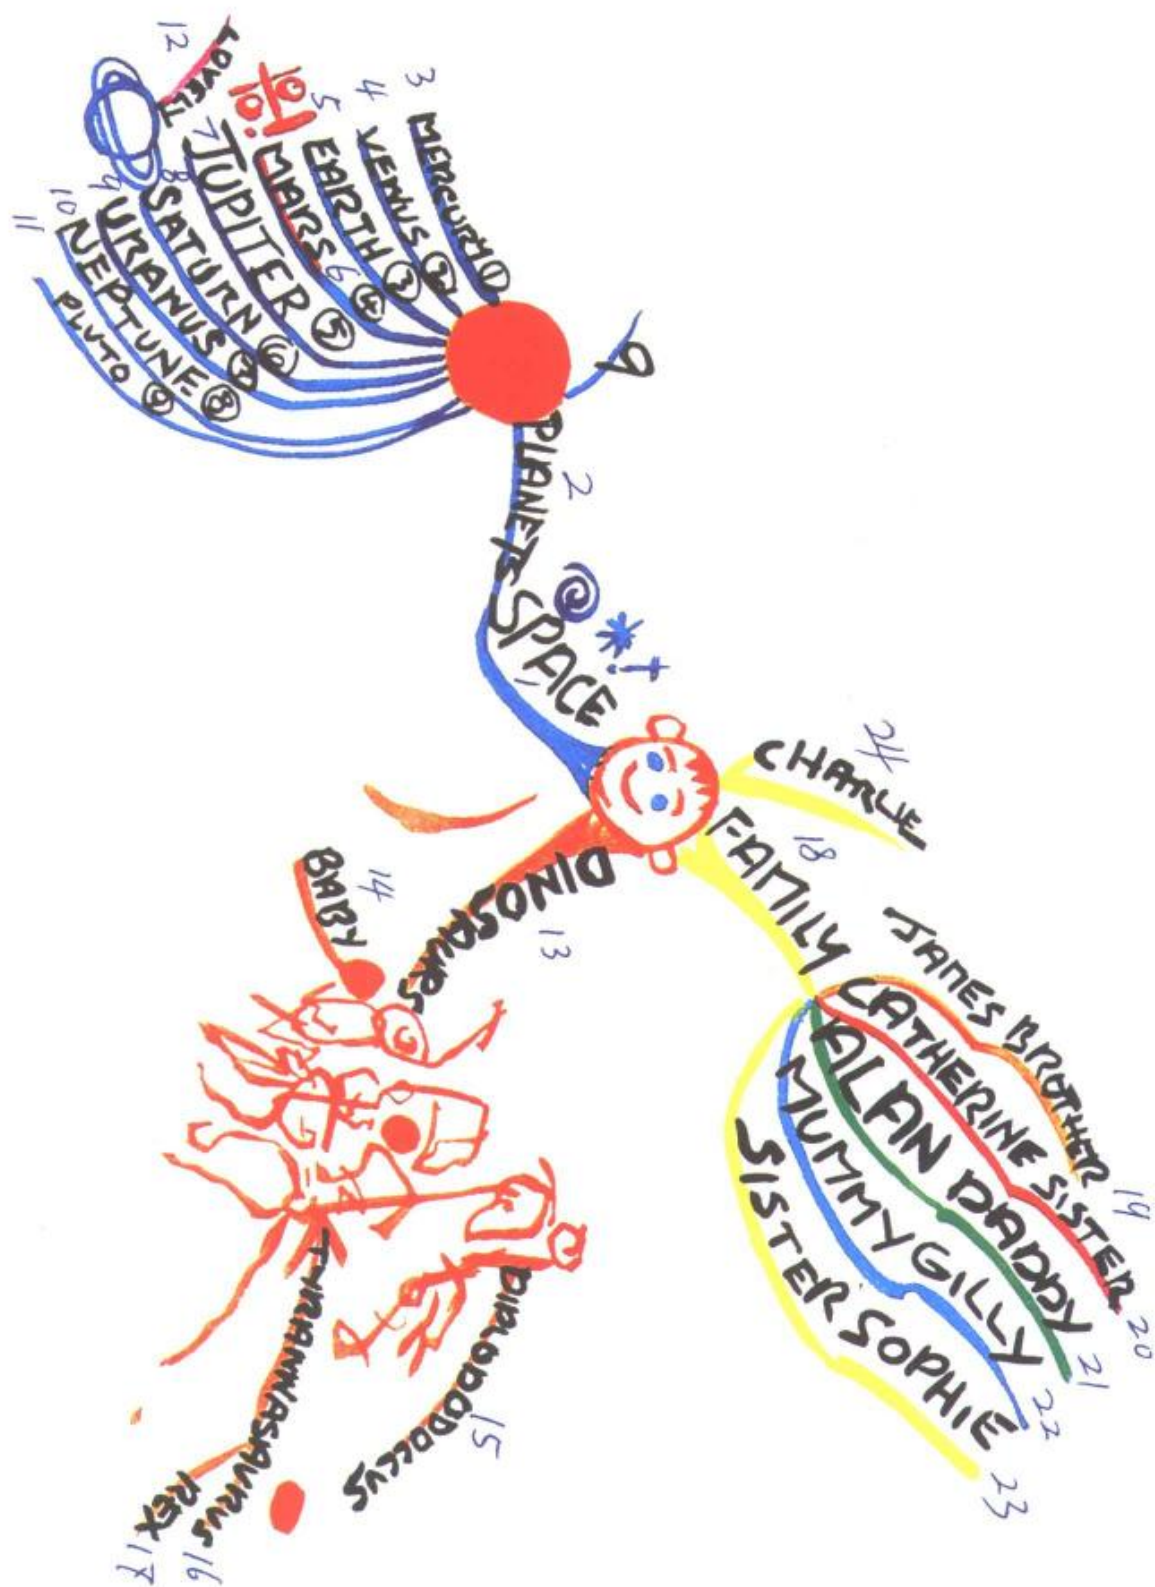 SPACE 1
PLANETS 2
9
MERCURY ① 3
VENUS ② 4
EARTH ③ 5
MARS ④ 6
10/10!
JUPITER ⑤ 7
SATURN ⑥ 8
URANUS ⑦ 9
NEPTUNE ⑧ 10
PLUTO ⑨ 11
12
DINOSAURS 13
BABY 14
DIPLODODOCCUS 15
TYRANNASAURUS 16
REX 17
FAMILY 18
JAMES BROTHER 19
CATHERINE SISTER 20
ALAN DADDY 21
MUMMY GILLY 22
SISTER SOPHIE 23
CHARLIE 24